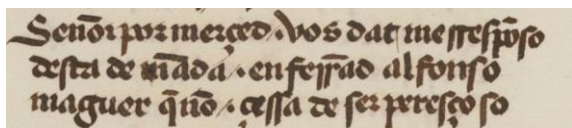 Señor por merçed · vos dat me rrespõso
desta demãda · en ferrãd alfonso
maguer q̃ nõ · çessa de ser peresçoso